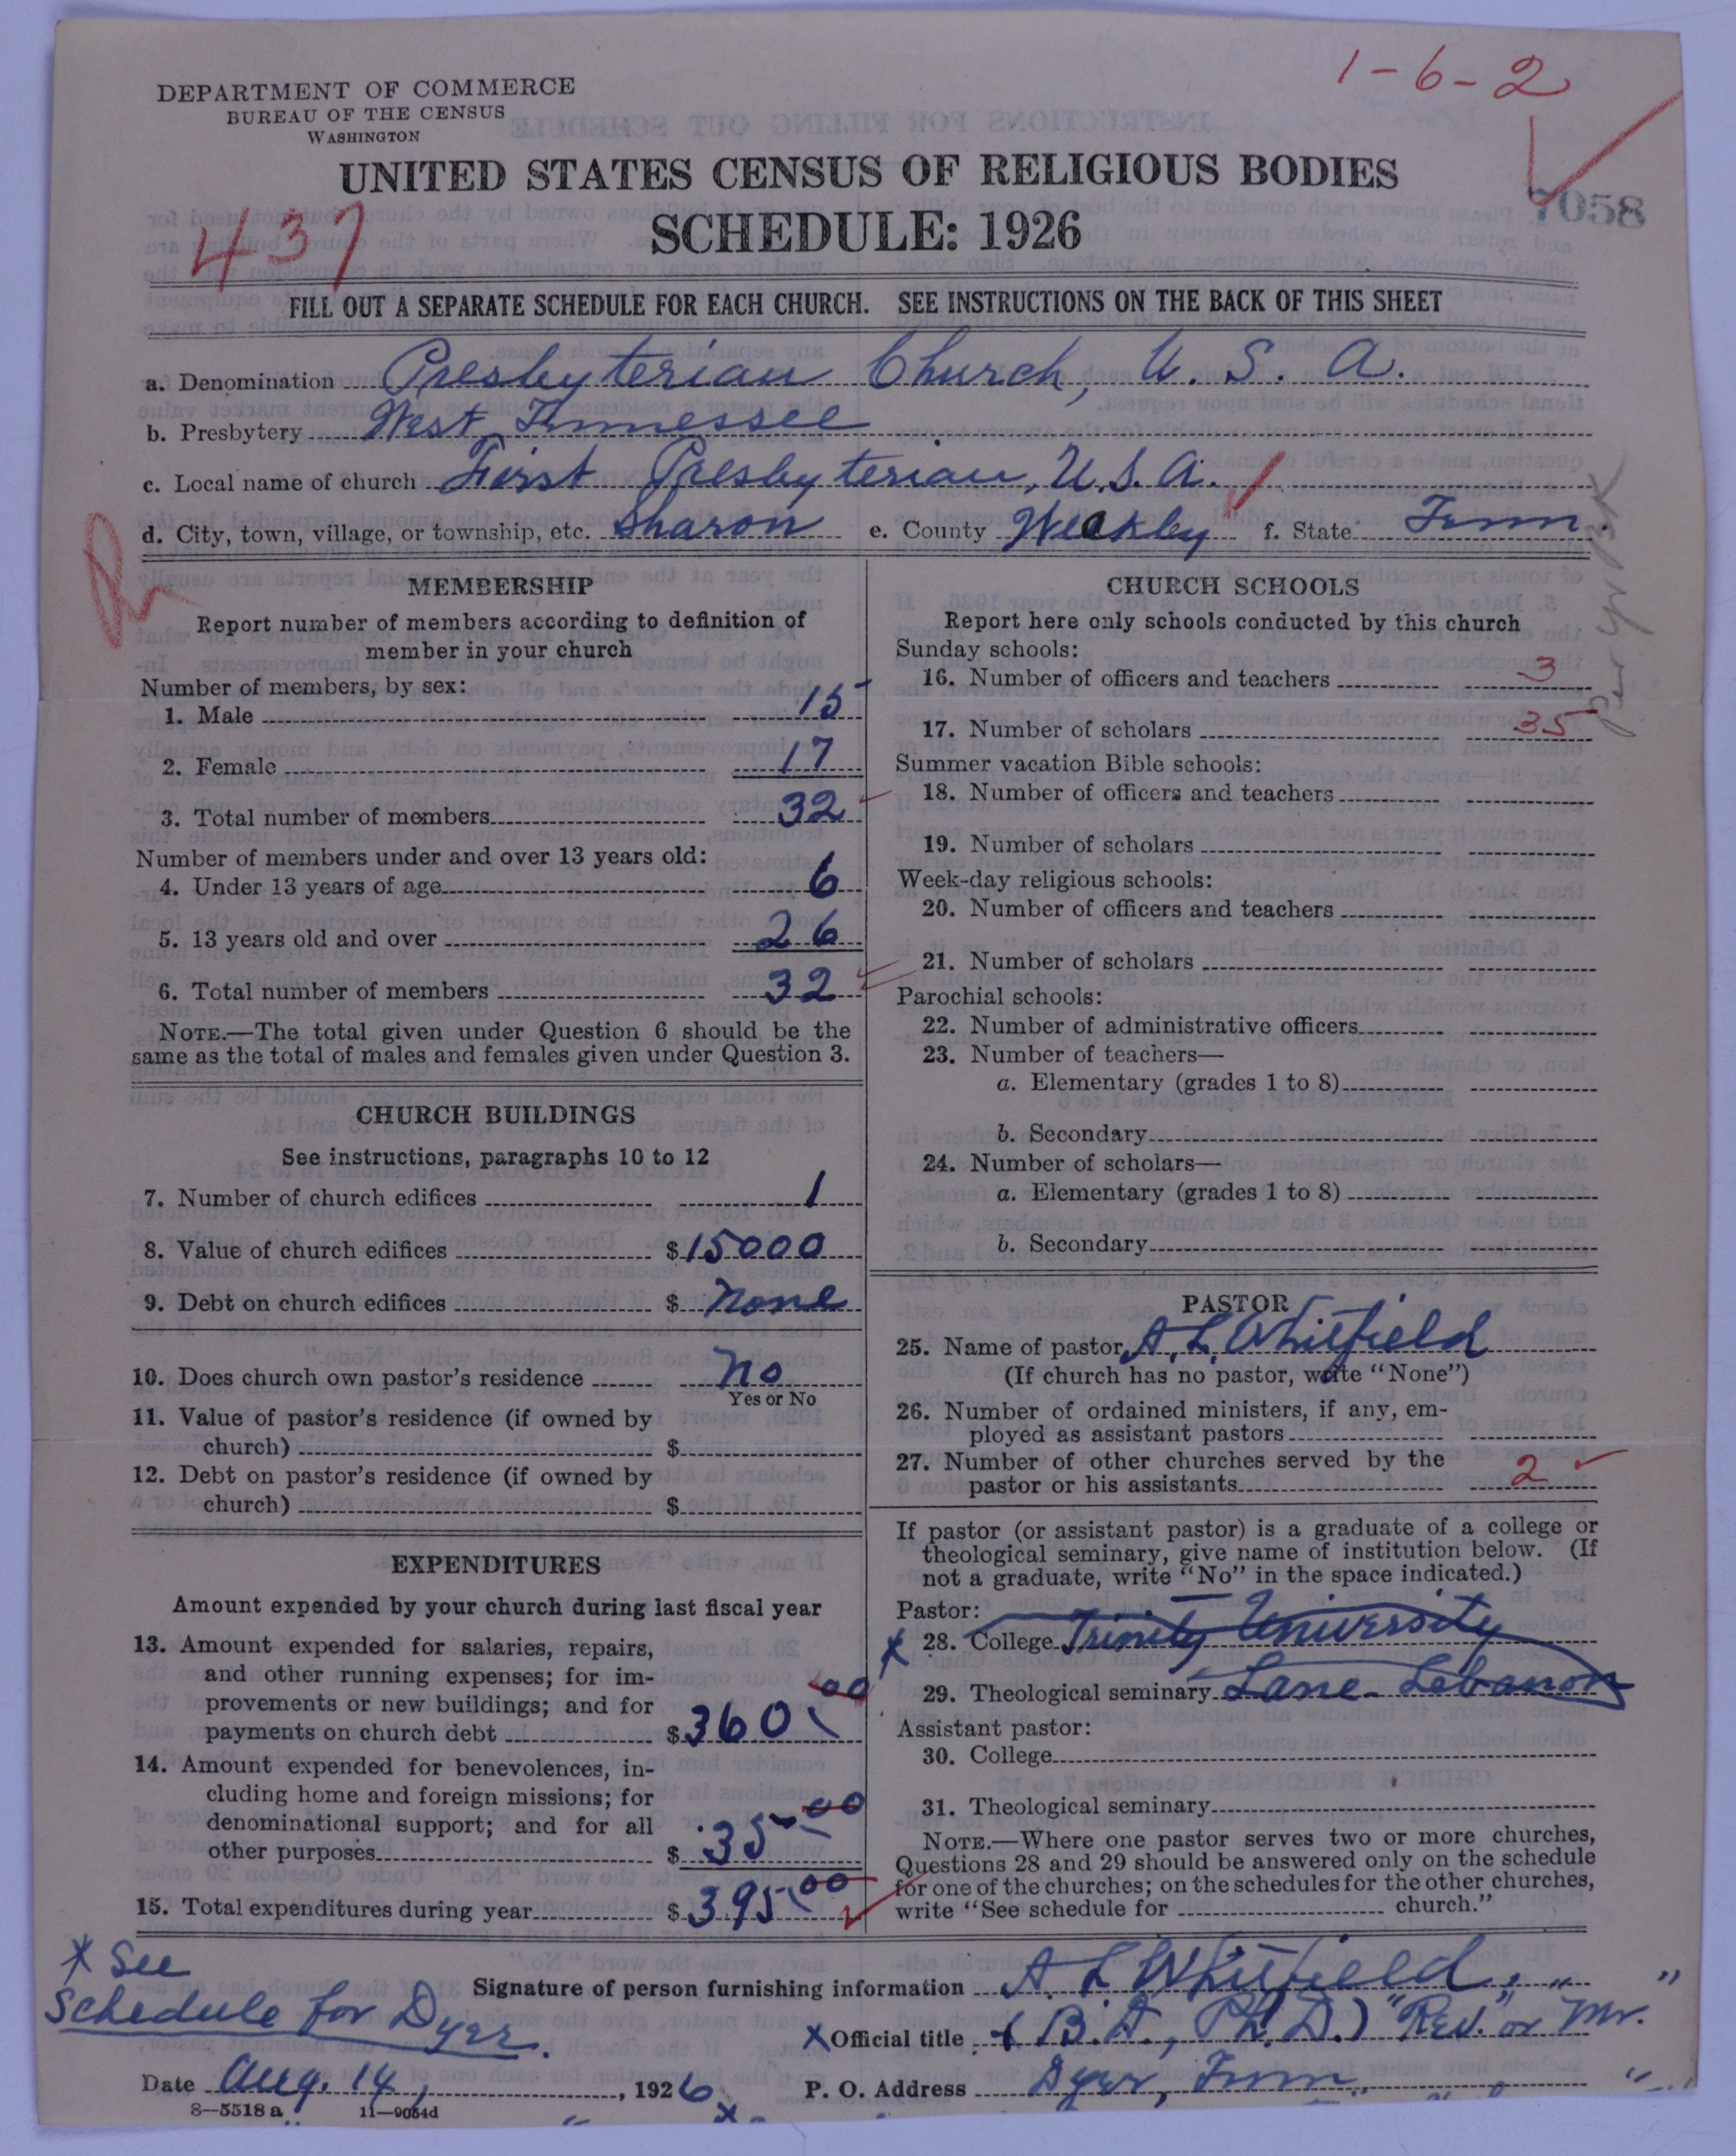 1-6-2
DEPARTMENT OF COMMERCE
BUREAU OF THE CENSUS
WASHINGTON
UNITED STATES CENSUS OF RELIGIOUS BODIES
7058
437
SCHEDULE: 1926
FILL OUT A SEPARATE SCHEDULE FOR EACH CHURCH. SEE INSTRUCTIONS ON THE BACK OF THIS SHEET
a. Denomination Presbyterian Church, U. S. A.
b. Presbytery West Tennessee
c. Local name of church First Presbyterian, U.S.A.
d. City, town, village, or township, etc. Sharon e. County Weakley f. State Tenn.
MEMBERSHIP
Report number of members according to definition of
member in your church
Number of members, by sex:
1. Male 15
2. Female 17
3. Total number of members 32
Number of members under and over 13 years old:
4. Under 13 years of age 6
5. 13 years old and over 26
6. Total number of members 32
NOTE.—The total given under Question 6 should be the
same as the total of males and females given under Question 3.
CHURCH BUILDINGS
See instructions, paragraphs 10 to 12
7. Number of church edifices 1
8. Value of church edifices $15000
9. Debt on church edifices $ None
10. Does church own pastor's residence No
Yes or No
11. Value of pastor's residence (if owned by
church) $
12. Debt on pastor's residence (if owned by
church) $
EXPENDITURES
Amount expended by your church during last fiscal year
13. Amount expended for salaries, repairs,
and other running expenses; for im-
provements or new buildings; and for
payments on church debt $360.00
14. Amount expended for benevolences, in-
cluding home and foreign missions; for
denominational support; and for all
other purposes $35.00
15. Total expenditures during year $395.00
CHURCH SCHOOLS
Report here only schools conducted by this church
Sunday schools:
16. Number of officers and teachers 3
17. Number of scholars 35
Summer vacation Bible schools:
18. Number of officers and teachers
19. Number of scholars
Week-day religious schools:
20. Number of officers and teachers
21. Number of scholars
Parochial schools:
22. Number of administrative officers
23. Number of teachers—
a. Elementary (grades 1 to 8)
b. Secondary
24. Number of scholars—
a. Elementary (grades 1 to 8)
b. Secondary
PASTOR
25. Name of pastor A. L. Whitfield
(If church has no pastor, write "None")
26. Number of ordained ministers, if any, em-
ployed as assistant pastors
27. Number of other churches served by the
pastor or his assistants 2
If pastor (or assistant pastor) is a graduate of a college or
theological seminary, give name of institution below. (If
not a graduate, write "No" in the space indicated.)
Pastor:
x 28. College Trinity University
29. Theological seminary Lane - Lebanon
Assistant pastor:
30. College
31. Theological seminary
NOTE.—Where one pastor serves two or more churches,
Questions 28 and 29 should be answered only on the schedule
for one of the churches; on the schedules for the other churches,
write "See schedule for church."
x See
Schedule for Dyer.
Signature of person furnishing information A. L. Whitfield, " "
x Official title (B.D., Ph.D.) "Rev." or Mr.
Date Aug. 14, 1926 P. O. Address Dyer, Tenn.
8—5518 a 11—9054d